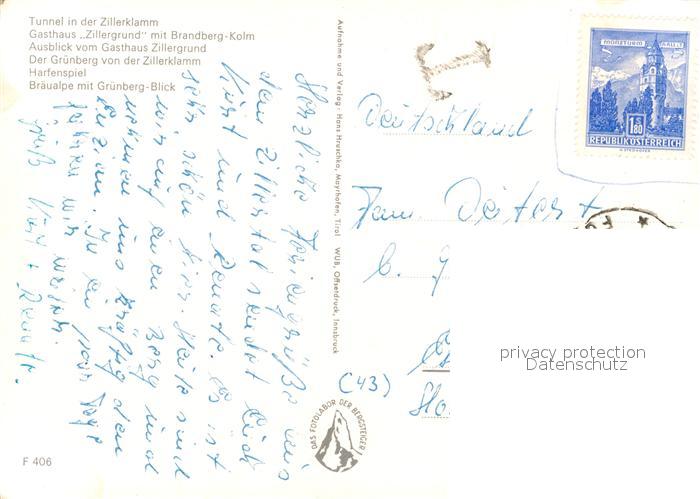 Tunnel in der Zillerklamm
Gasthaus „Zillergrund" mit Brandberg-Kolm
Ausblick vom Gasthaus Zillergrund
Der Grünberg von der Zillerklamm
Harfenspiel
Bräualpe mit Grünberg-Blick
Herzliche Feriengrüße aus
dem Zillertal sendet Euch
Kurt und Renate. Es ist
sehr schön hier. Heute sind
wir auf einen Berg und
nehmen uns kräftig den
In ein paar Tage
fahren wir weiter.
Gruß Kurt + Renate.
Aufnahme und Verlag: Hans Hruschka, Mayrhofen, Tirol WUB, Offsetdruck, Innsbruck
T
MÜNZTURM HALL I. T.
1.80
S
REPUBLIK ÖSTERREICH
Deutschland
Fam. Deitert
(43)
privacy protection
Datenschutz
DAS FOTOLABOR DER BERGSTEIGER
F 406